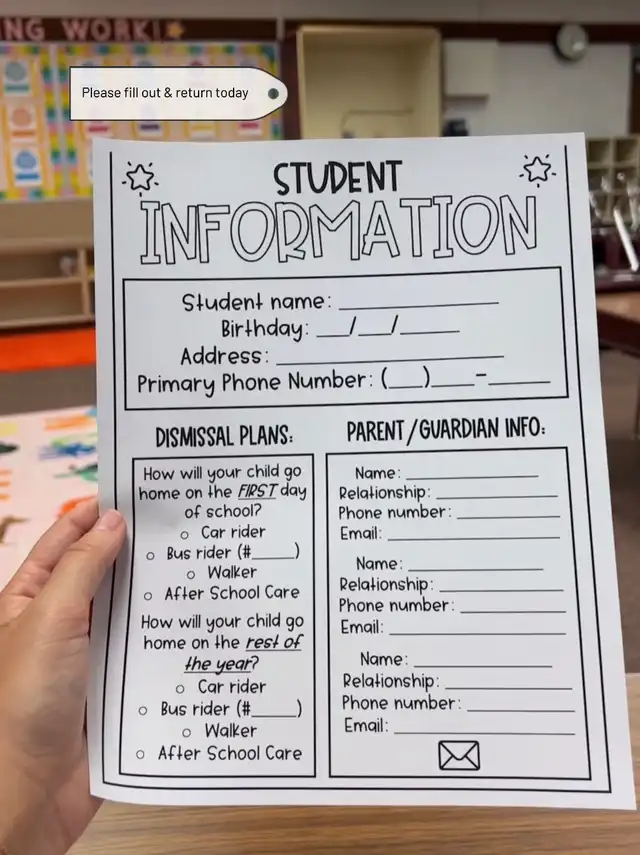 NG WORK!
Please fill out & return today
STUDENT
INFORMATION
Student name: ____________
Birthday: __/__/____
Address: ________________
Primary Phone Number: (__)___-____
DISMISSAL PLANS:
How will your child go
home on the FIRST day
of school?
○ Car rider
○ Bus rider (#____)
○ Walker
○ After School Care
How will your child go
home on the rest of
the year?
○ Car rider
○ Bus rider (#____)
○ Walker
○ After School Care
PARENT/GUARDIAN INFO:
Name: ____________
Relationship: ____________
Phone number: ____________
Email: ________________
Name: ____________
Relationship: ____________
Phone number: ____________
Email: ________________
Name: ____________
Relationship: ____________
Phone number: ____________
Email: ________________